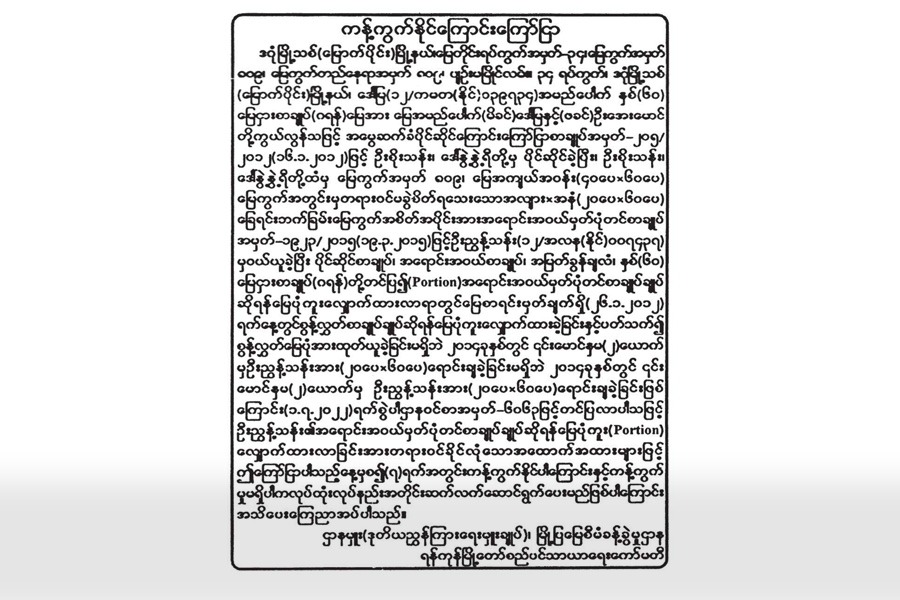 ကန့်ကွက်နိုင်ကြောင်းကြော်ငြာ
ဒဂုံမြို့သစ်(မြောက်ပိုင်း)မြို့နယ်၊မြေတိုင်းရပ်ကွက်အမှတ်-၃၄၊မြေကွက်အမှတ်
၈၀၉၊ မြေကွက်တည်နေရာအမှတ် ၈၀၉၊ ပျဉ်းမပြိုင်လမ်း၊ ၃၄ ရပ်ကွက်၊ ဒဂုံမြို့သစ်
(မြောက်ပိုင်း)မြို့နယ်၊ ဒေါ်မြ(၁၂/ကမတ(နိုင်)၁၃၉၇၃၄)အမည်ပေါက် နှစ်(၆၀)
မြေငှားစာချုပ်(ဂရန်)မြေအား မြေအမည်ပေါက်(မိခင်)ဒေါ်မြနှင့်(ဖခင်)ဦးအေးမောင်
တို့ကွယ်လွန်သဖြင့် အမွေဆက်ခံပိုင်ဆိုင်ကြောင်းကြော်ငြာစာချုပ်အမှတ်-၂၀၅/
၂၀၁၂(၁၆.၁.၂၀၁၂)ဖြင့် ဦးစိုးသန်း၊ ဒေါ်နွဲ့နွဲ့ရီတို့မှ ပိုင်ဆိုင်ခဲ့ပြီး၊ ဦးစိုးသန်း၊
ဒေါ်နွဲ့နွဲ့ရီတို့ထံမှ မြေကွက်အမှတ် ၈၀၉၊ မြေအကျယ်အဝန်း(၄၀ပေ×၆၀ပေ)
မြေကွက်အတွင်းမှတရားဝင်မခွဲစိတ်ရသေးသောအလျား×အနံ(၂၀ပေ×၆၀ပေ)
ခြေရင်းဘက်ခြမ်းမြေကွက်အစိတ်အပိုင်းအားအရောင်းအဝယ်မှတ်ပုံတင်စာချုပ်
အမှတ်-၁၉၂၃/၂၀၁၅(၁၉.၃.၂၀၁၅)ဖြင့်ဦးညွန့်သန်း(၁၂/အလန(နိုင်)၀၀၇၄၃၇)
မှဝယ်ယူခဲ့ပြီး ပိုင်ဆိုင်စာချုပ်၊ အရောင်းအဝယ်စာချုပ်၊ အမြတ်ခွန်ချလံ၊ နှစ်(၆၀)
မြေငှားစာချုပ်(ဂရန်)တို့တင်ပြ၍(Portion)အရောင်းအဝယ်မှတ်ပုံတင်စာချုပ်ချုပ်
ဆိုရန်မြေပုံကူးလျှောက်ထားလာရာတွင်မြေစာရင်းမှတ်ချက်ရှိ(၂၆.၁.၂၀၁၂)
ရက်နေ့တွင်စွန့်လွှတ်စာချုပ်ချုပ်ဆိုရန်မြေပုံကူးလျှောက်ထားခဲ့ခြင်းနှင့်ပတ်သက်၍
စွန့်လွှတ်မြေပုံအားထုတ်ယူခဲ့ခြင်းမရှိဘဲ ၂၀၁၄ခုနှစ်တွင် ၎င်းမောင်နှမ(၂)ယောက်
မှဦးညွန့်သန်းအား(၂၀ပေ×၆၀ပေ)ရောင်းချခဲ့ခြင်းမရှိဘဲ ၂၀၁၄ခုနှစ်တွင် ၎င်း
မောင်နှမ(၂)ယောက်မှ ဦးညွန့်သန်းအား(၂၀ပေ×၆၀ပေ)ရောင်းချခဲ့ခြင်းဖြစ်
ကြောင်း(၁.၇.၂၀၂၂)ရက်စွဲပါဌာနဝင်စာအမှတ်-၆၀၆၃ဖြင့်တင်ပြလာပါသဖြင့်
ဦးညွန့်သန်း၏အရောင်းအဝယ်မှတ်ပုံတင်စာချုပ်ချုပ်ဆိုရန်မြေပုံကူး(Portion)
လျှောက်ထားလာခြင်းအားတရားဝင်ခိုင်လုံသောအထောက်အထားများဖြင့်
ဤကြော်ငြာပါသည့်နေ့မှစ၍(၇)ရက်အတွင်းကန့်ကွက်နိုင်ပါကြောင်းနှင့်ကန့်ကွက်
မှုမရှိပါကလုပ်ထုံးလုပ်နည်းအတိုင်းဆက်လက်ဆောင်ရွက်ပေးမည်ဖြစ်ပါကြောင်း
အသိပေးကြေညာအပ်ပါသည်။
ဌာနမှူး(ဒုတိယညွှန်ကြားရေးမှူးချုပ်)၊ မြို့ပြမြေစီမံခန့်ခွဲမှုဌာန
ရန်ကုန်မြို့တော်စည်ပင်သာယာရေးကော်မတီ